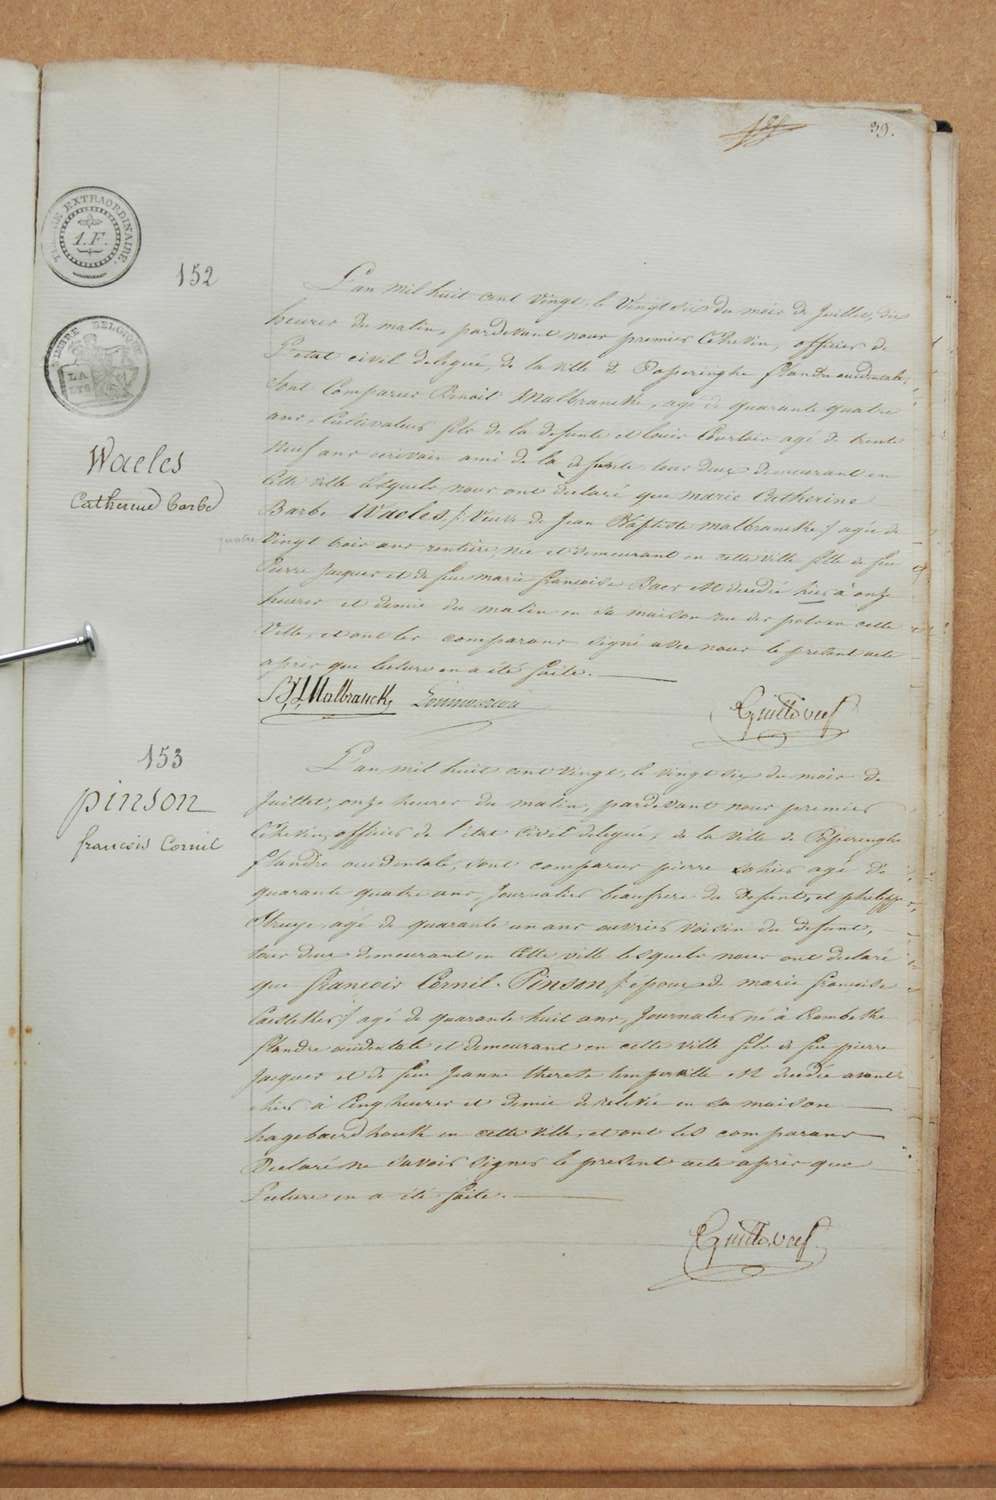 39.
TIMBRE EXTRAORDINAIRE.
1.F.
152
TIMBRE BELGIQUE
LA
LYS
Waeles
Catherine Barbe
L'an mil huit cent vingt, le vingt six du mois de Juillet, dix
heures du matin, pardevant nous premier Echevin, officier de
l'etat civil delegué, de la ville de Poperinghe flandre occidentale,
sont comparus Benoit Malbrancke, agé de quarante quatre
ans, Cultivateur fils de la defunte et Louis Courtois agé de trente
neuf ans ecrivain ami de la defunte tous deux demeurant en
cette ville lesquels nous ont declaré que marie Catherine
Barbe Waeles /: veuve de Jean Baptiste malbrancke :/ agée de
quatre vingt trois ans rentiere née et demeurant en cette ville fille de feu
Pierre Jacques et de feue marie francoise Baes est decedée hier à onze
heures et demie du matin en sa maison rue des pots en cette
Ville, et ont les comparans signé avec nous le present acte
après que lecture en a été faite.
B J Malbranck
153
pinson
francois Cornil
L'an mil huit cent vingt, le vingt six du mois de
Juillet, onze heures du matin, pardevant nous premier
Echevin, officier de l'état civil delegué, de la ville de Poperinghe
flandre occidentale, sont comparus pierre cohier agé de
quarante quatre ans, Journalier beaufrere du defunt, et philippe
agé de quarante un ans ouvrier voisin du defunt,
tous deux demeurant en cette ville lesquels nous ont declaré
que francois Cornil Pinson /: époux de marie francoise
:/ agé de quarante huit ans, Journalier né à Crombeke
flandre occidentale et demeurant en cette ville fils de feu pierre
Jacques et de feue Jeanne therese est decedé avant
hier à cinq heures et demie de relevée en sa maison
hagebaerd houck en cette ville, et ont les comparans
declaré ne savoir signer le present acte après que
lecture en a été faite.